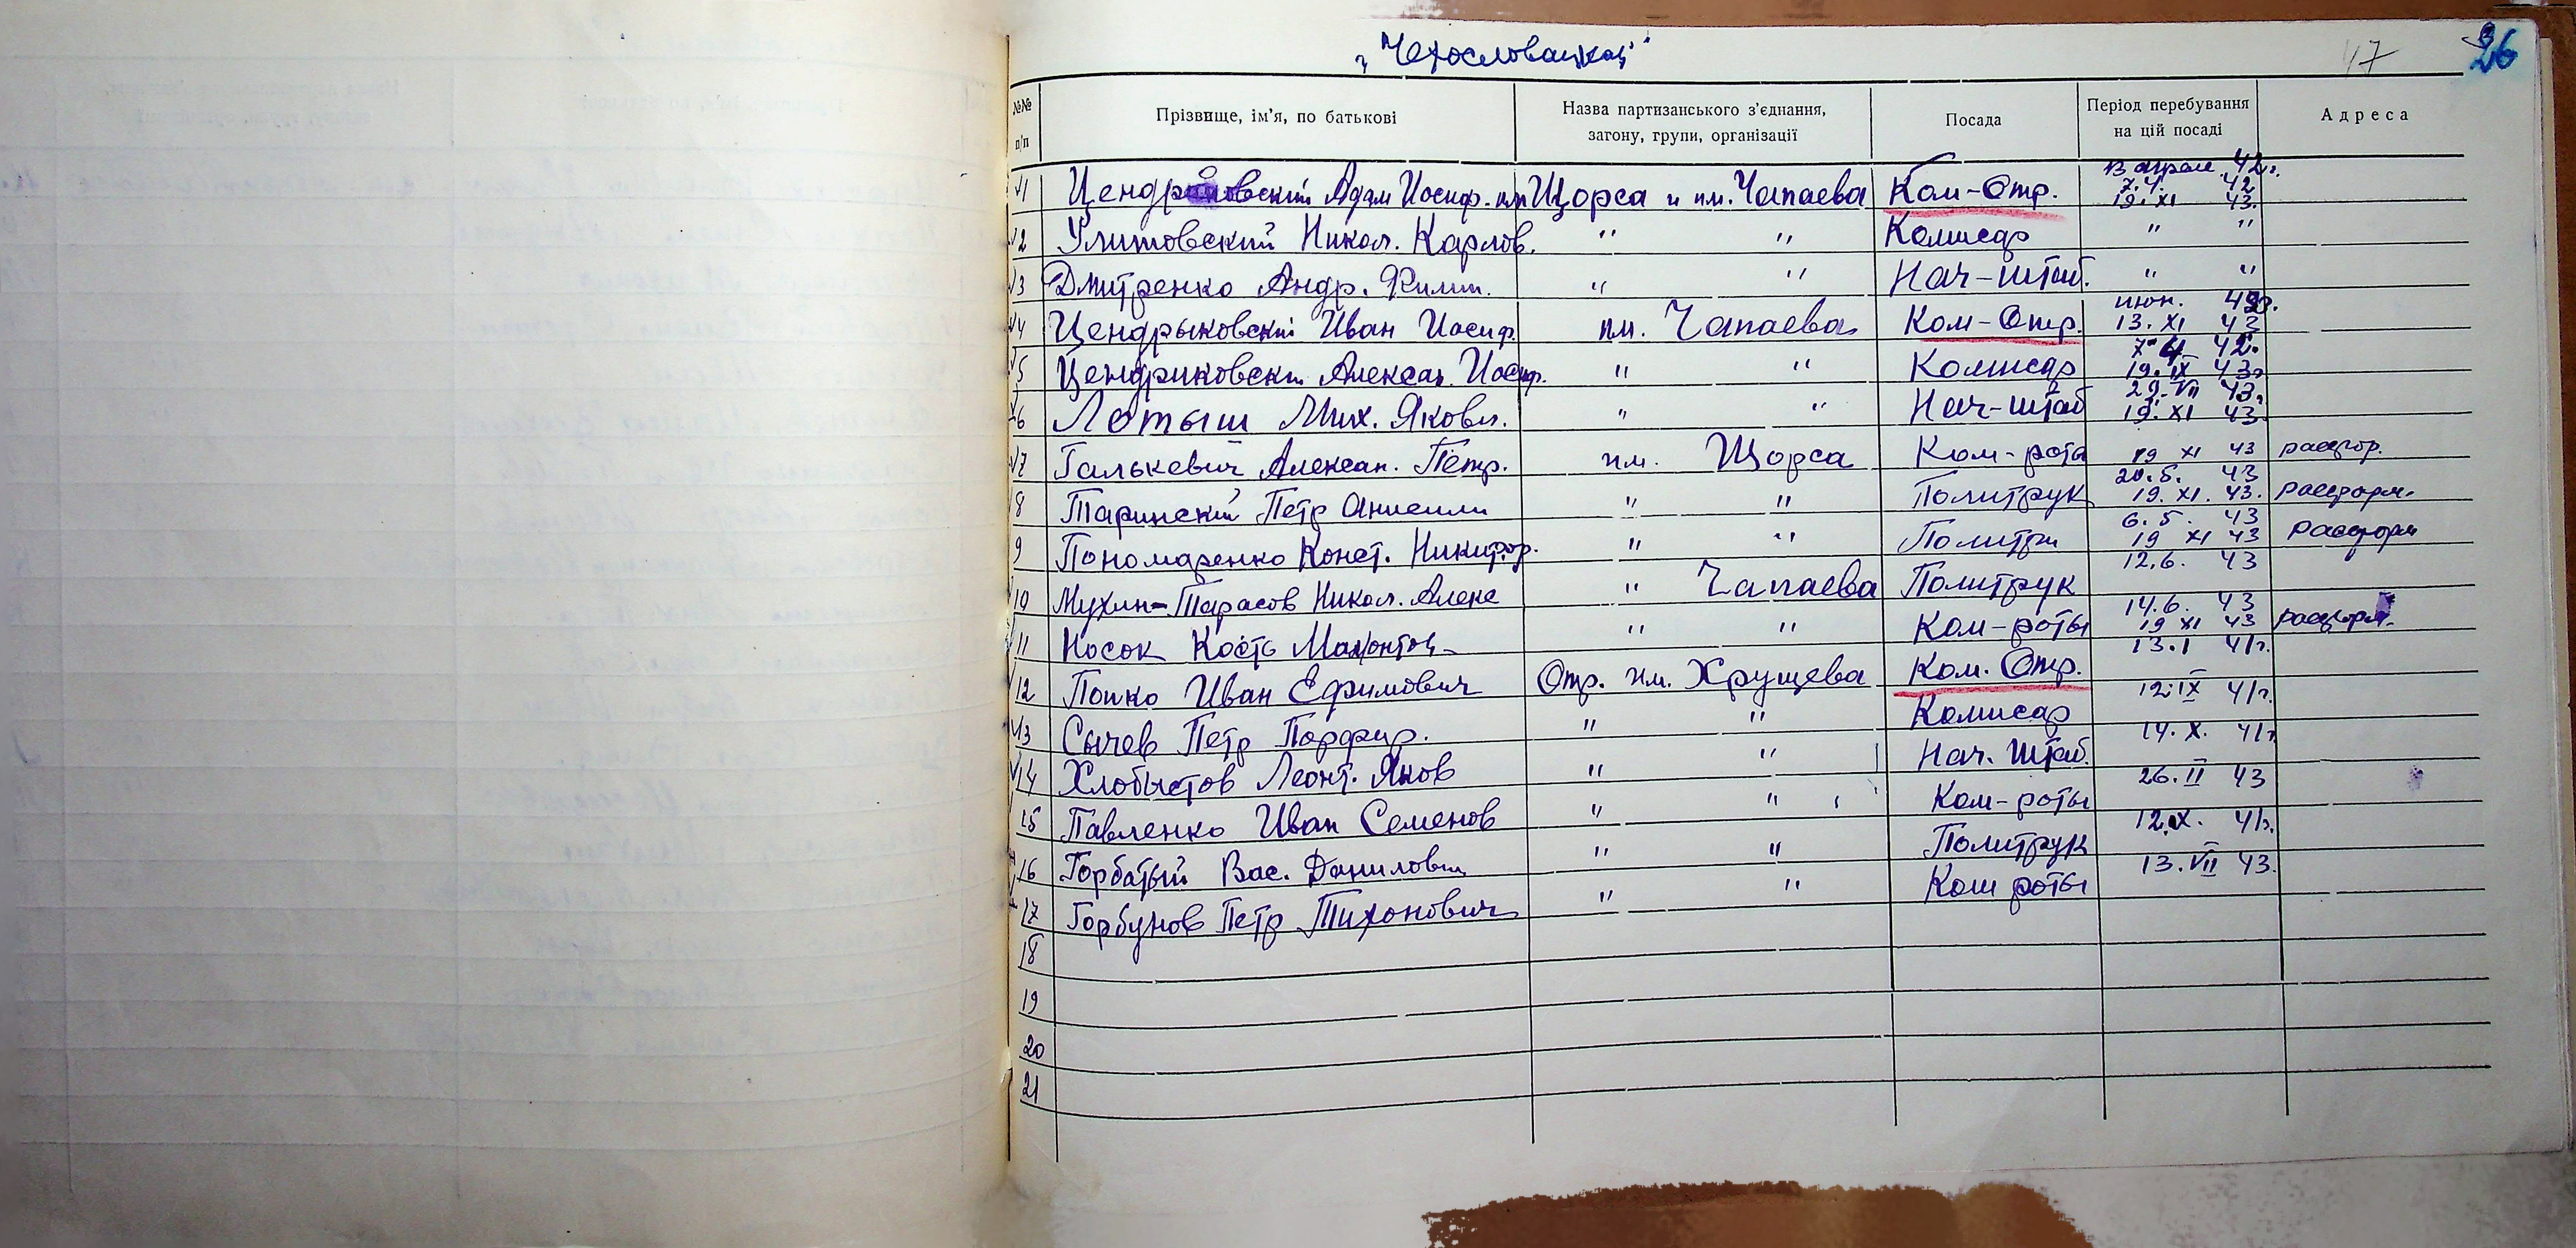 „Чехословацкая"
47 26
№№ п/п Прізвище, ім'я, по батькові Назва партизанського з'єднання, загону, групи, організації Посада Період перебування на цій посаді Адреса
1 Цендриковский Адам Иосиф. им Щорса и им. Чапаева Ком-Отр. 42г. 7.4. 42 19.XI 43.
2 Улитовский Никол. Карлов. " " Комисар " "
3 Дмитренко Андр. Филип. " " Нач-штаб. " "
4 Цендрыковский Иван Иосиф. им. Чапаева Ком-Отр. июн. 13.XI 43
5 Цендриковски Алексан. Иосиф. " " Комисар 42. 19.IX 43г
6 Лотыш Мих. Яковл. " " Нач-штаб 29.VII 43. 19.XI 43.
7 Галькевич Алексан. Петр. им. Щорса Ком-рота 19 XI 43
8 Таринский Петр " " Политрук 20.5. 43 19.XI.43. Расформ.
9 Пономаренко Конст. Никифор. " " 6.5. 43 19 XI 43 Расформ
10 Мухин-Тарасов Никол. Алекс " Чапаева Политрук 12.6. 43
11 Носок Кость " " Ком-роты 14.6. 43 19 XI 43 расформ.
12 Попко Иван Ефимович Отр. им. Хрущева Ком. Отр. 13.I 41г.
13 Сычев Петр Порфир. " " Комисар 12.IX 41г.
14 Хлобыстов Леонт. Яков " " Нач. Штаб. 14.X. 41г
15 Павленко Иван Семенов " " Ком-роты 26.II 43
16 Горбатый Вас. Данилович " " Политрук 12.X. 41г.
17 Горбунов Петр Тихонович " " Ком роты 13.VII 43.
18
19
20
21